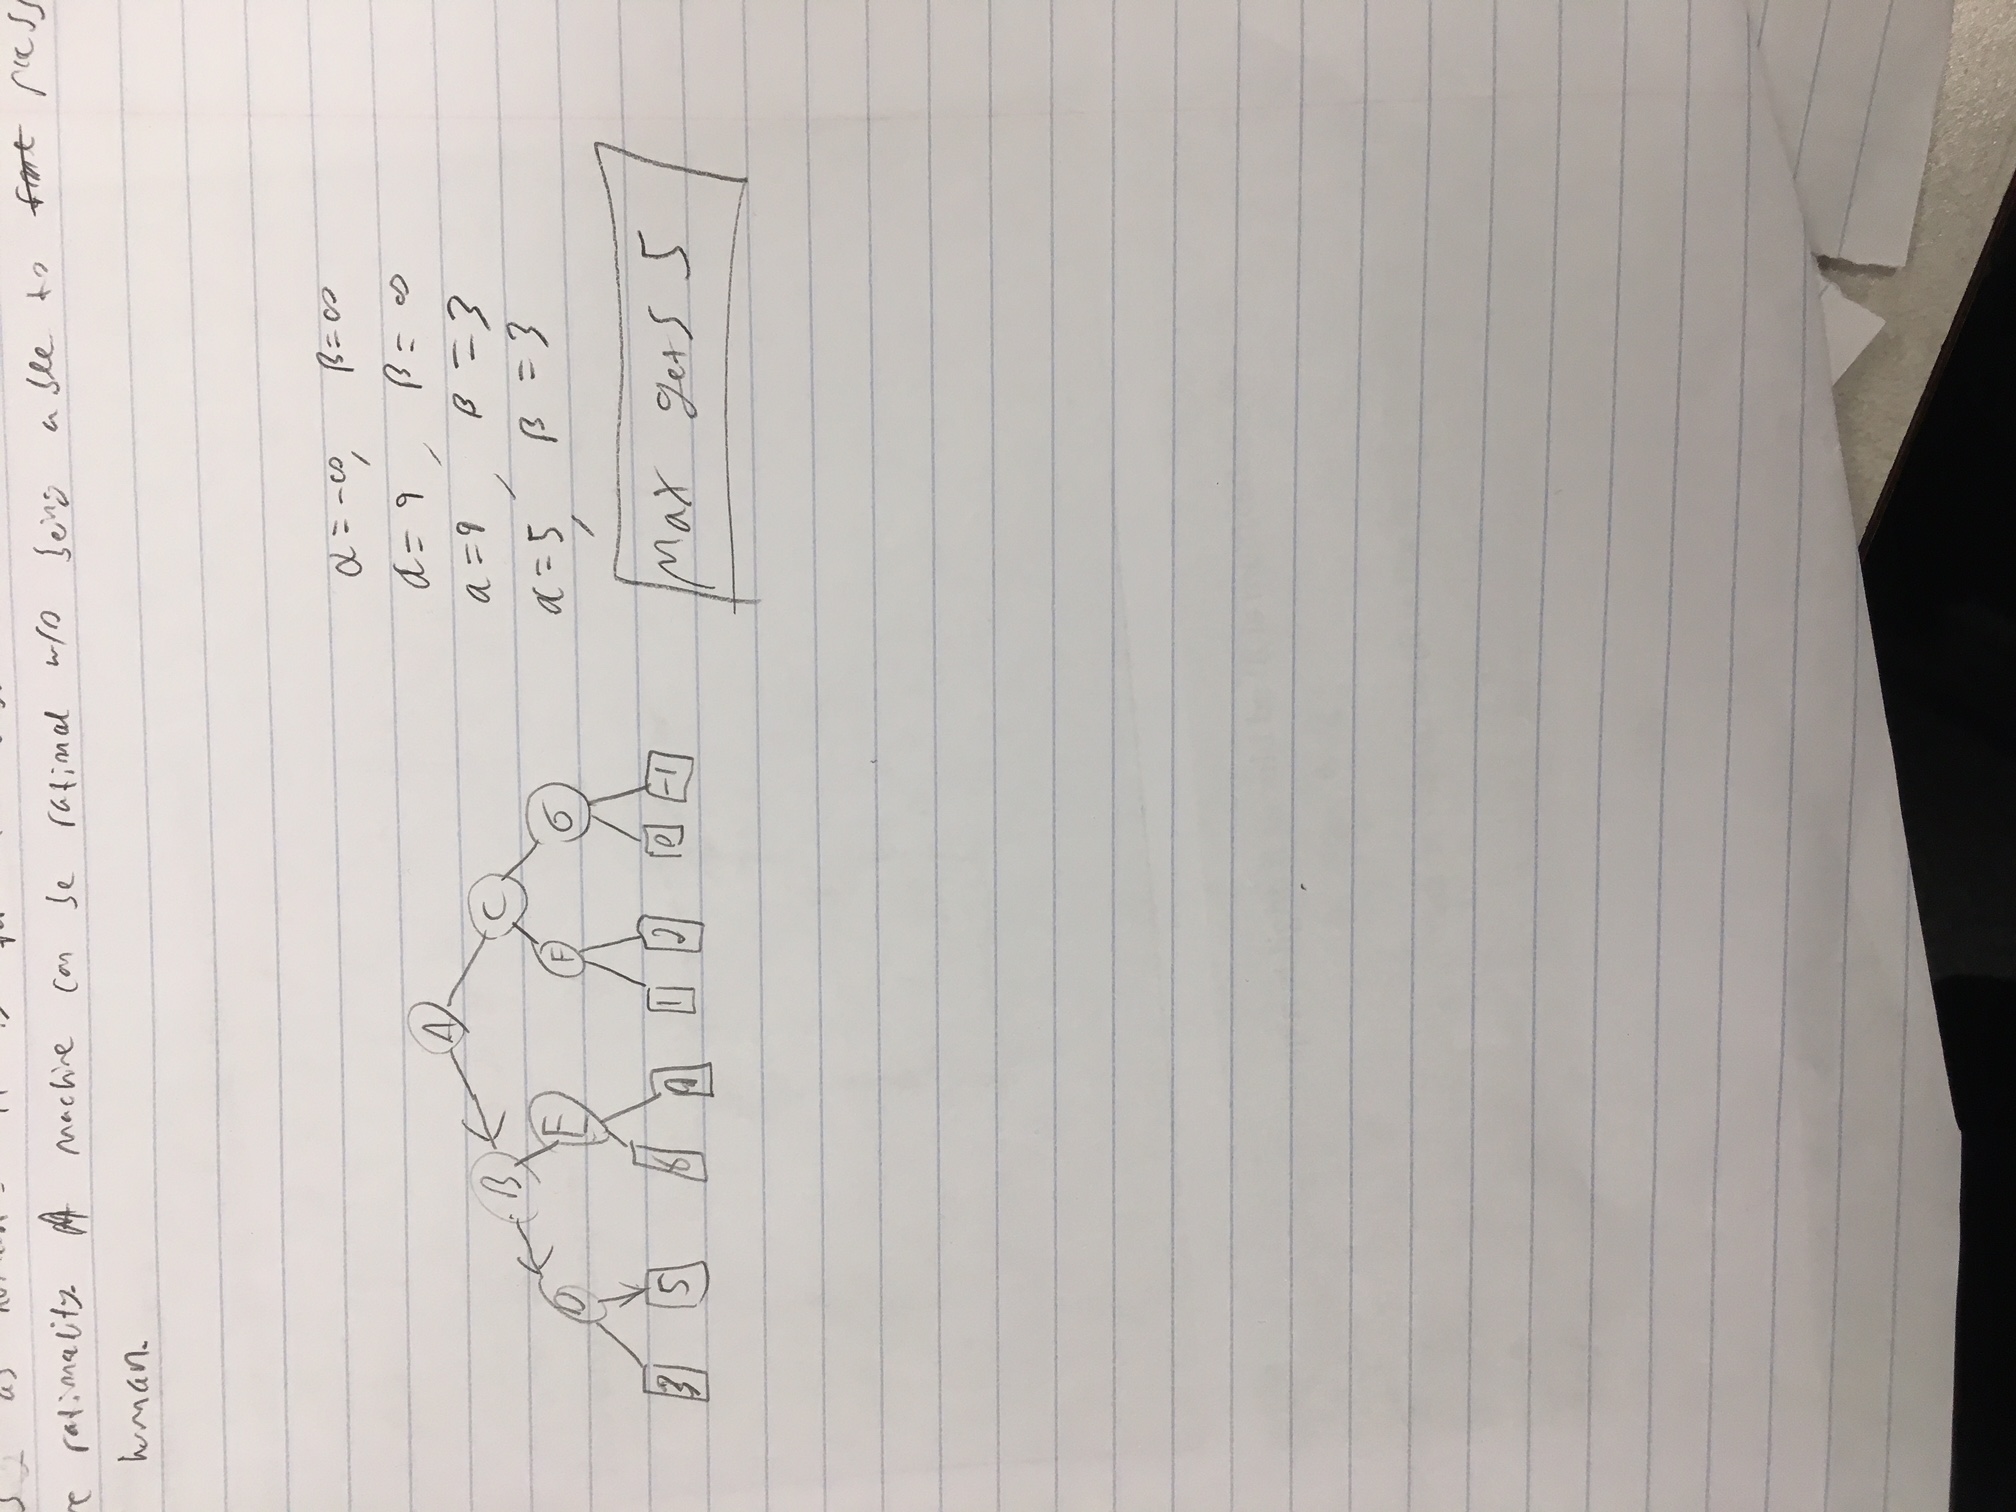 as
re rationality. A machine can be rational w/o being able to pass
human.
A
B C
D E F G
3 5 9 1 2 0 -1
α = -∞, β = ∞
α = 9, β = ∞
α = 9, β = 3
α = 5, β = 3
Max gets 5